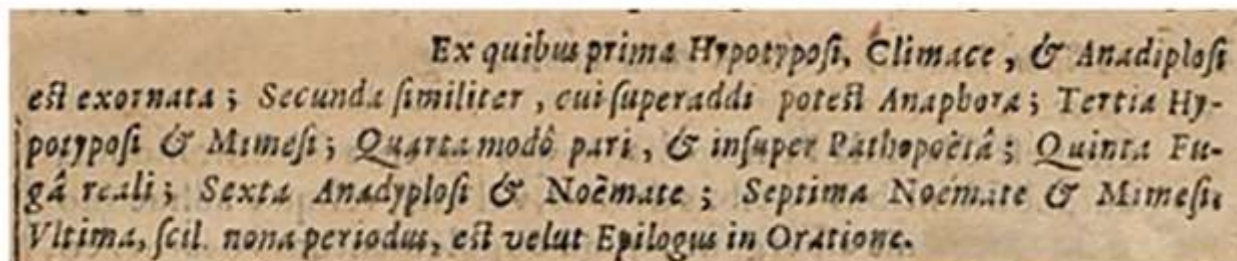 Ex quibus prima Hypotyposi, Climace, & Anadiplosi
est exornata; Secunda similiter, cui superaddi potest Anaphora; Tertia Hy-
potyposi & Mimesi; Quarta modô pari, & insuper Pathopoëiâ; Quinta Fu-
gâ reali; Sexta Anadyplosi & Noëmate; Septima Noëmate & Mimesi,
Vltima, scil. nona periodus, est velut Epilogus in Oratione.